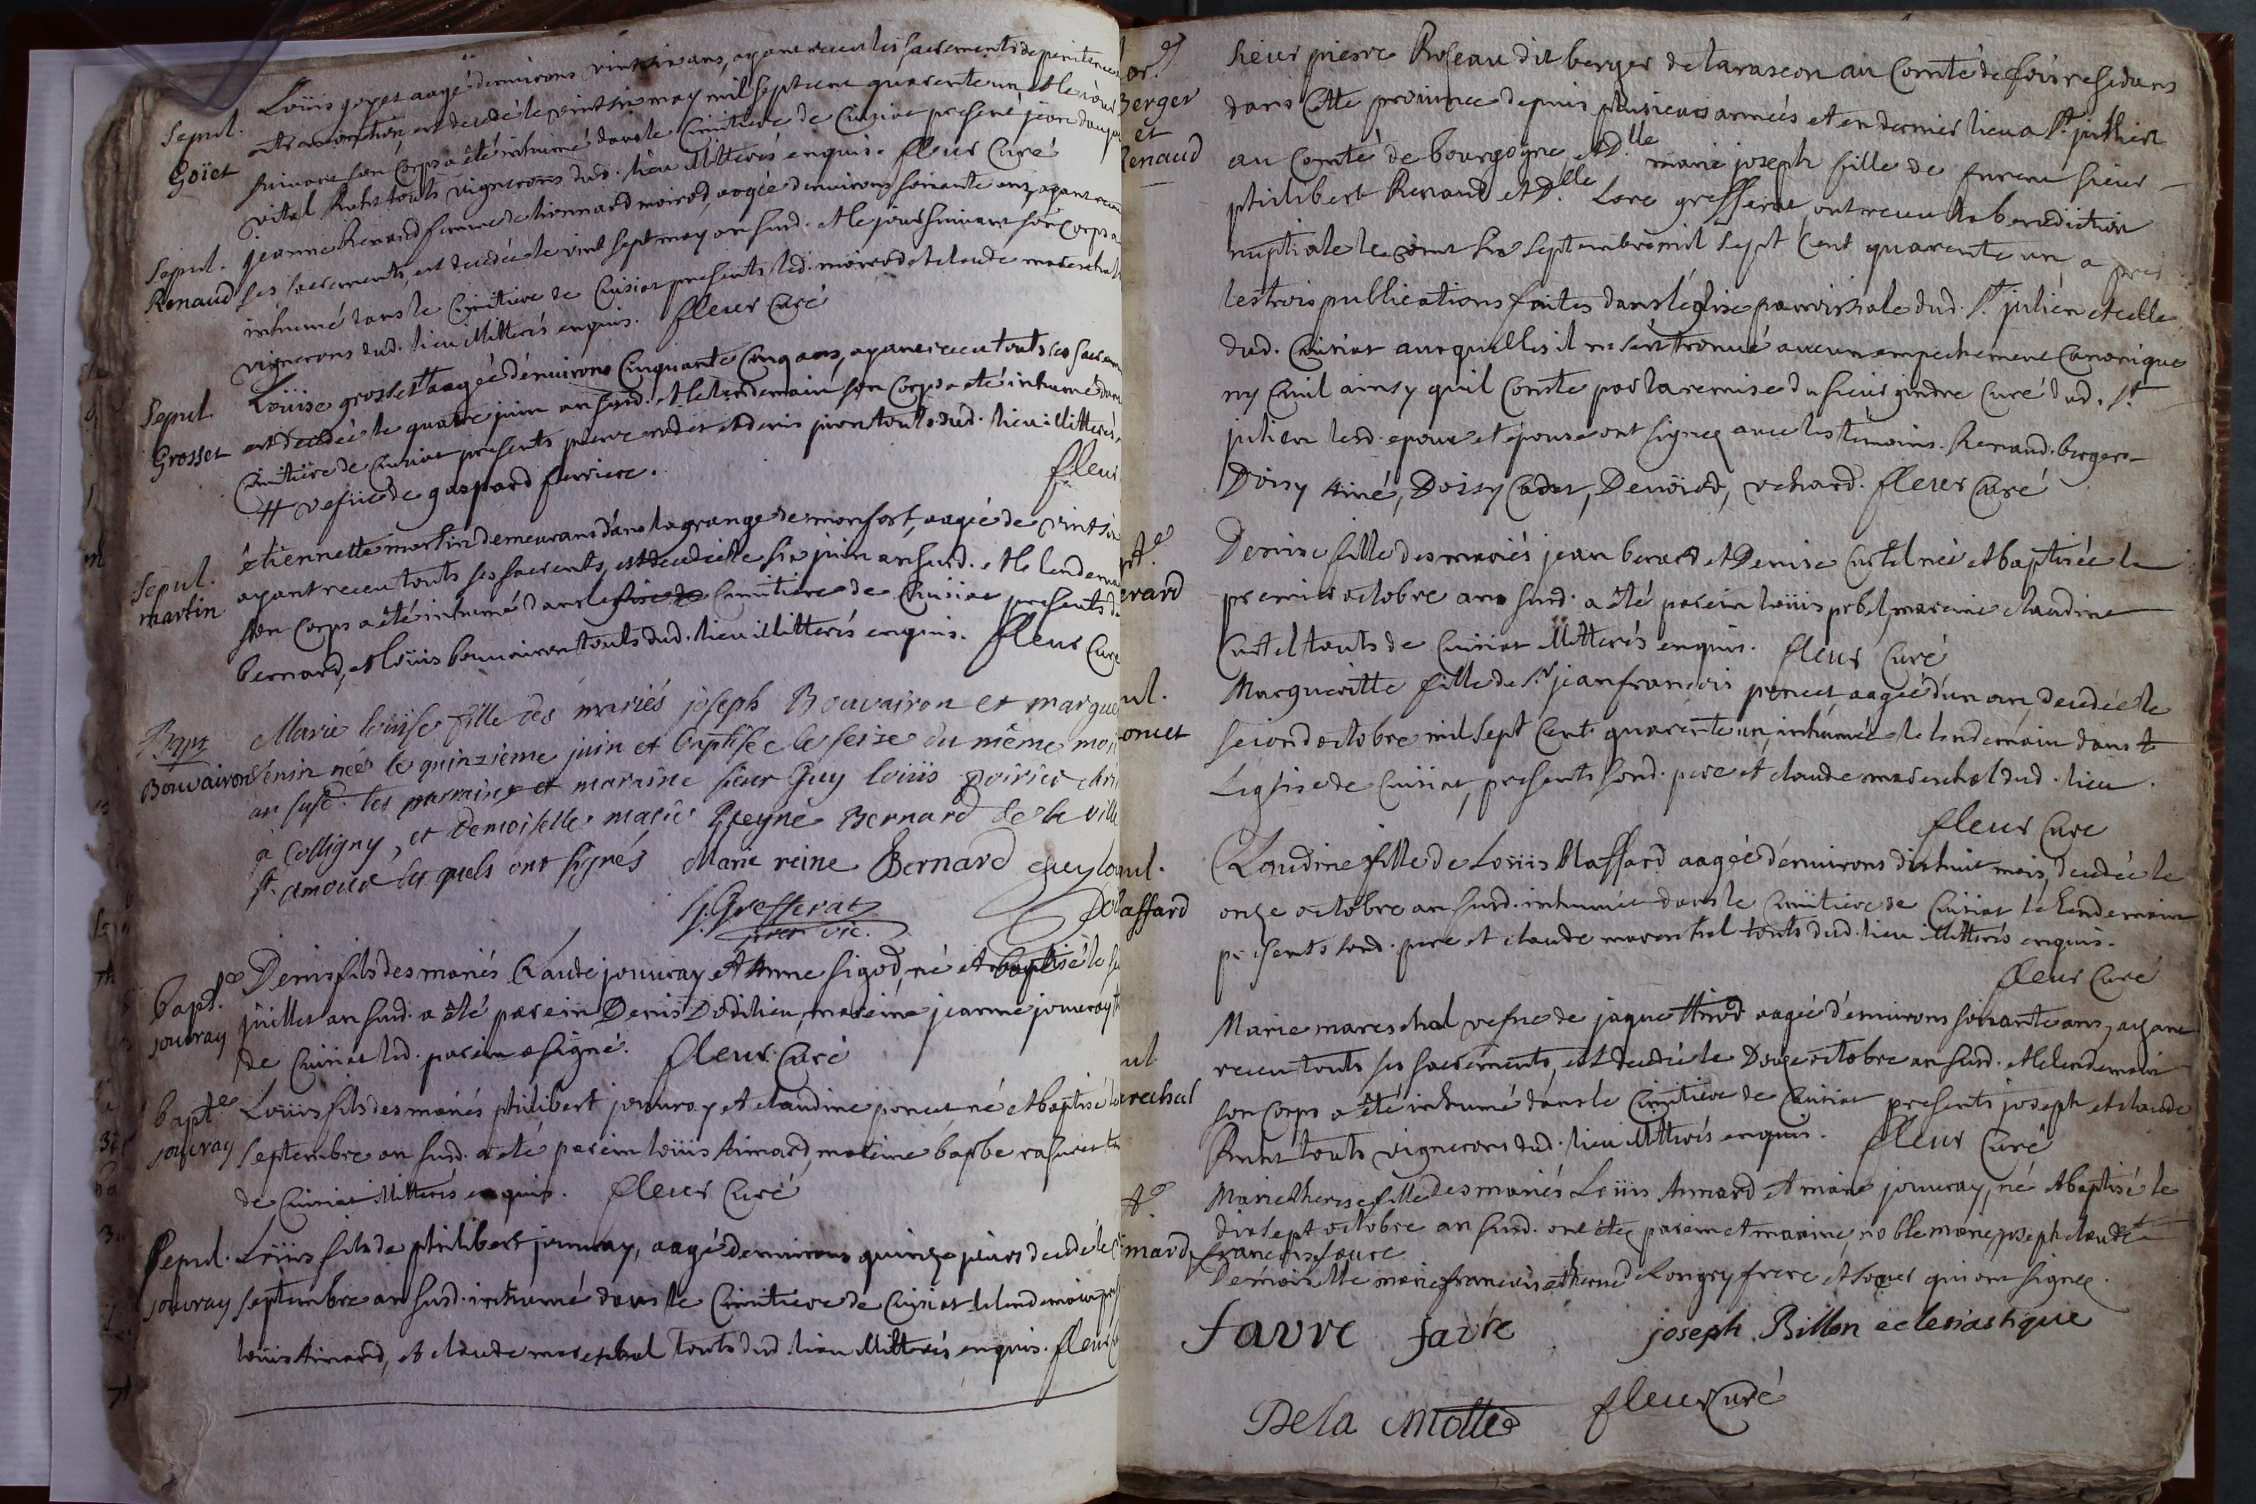 Sepul. Loüis goyet aagé denvirons vint six ans, ayant receu les sacrements de penitence
Goïet extremonction, est decedé le vint six may mil sept cent quarante un, et le jour
suivant son corps a été inhumé dans le cimitiere de Cuisiat present jean
vital touts vignerons dud. lieu illitterés enquis. fleur Curé
Sepul. jeanne Renaud femme de lionnard moirod, aagée denvirons soixante ans, ayant receu
Renaud ses sacrements, est decedée le vint sept may an susd. et le jour suivant son corps a
inhumé dans le Cimitiere de Cuisiat presents led. moirod et claude mareschal
vignerons dud. lieu illitterés enquis. fleur Curé
Sepul. Loüise grosset # aagée d'environs Cinquante Cinq ans, ayant receu touts ses sacrem
Grosset est decedée le quatre juin an susd. et le lendemain son corps a été inhumé dans
Cimitiere de Cuisiat presents pierre et denis touts dud. lieu illitterés,
# vefue de gaspard ferriere. fleur
Sepul. étiennette martin demeurans dans la grange de monfort, aagée de vint six
martin ayant receu touts ses sacrents, est decedée le six juin an susd. et le lendemai
son corps a été inhumé dans le Cimitiere de Cuisiat presents
bernard, et loüis bouvairon touts dud. lieu illitterés enquis. fleur Curé
Bapt Marie loüise fille des mariés joseph Bouvairon et margue
Bouvairon née le quinzième juin et baptisée le seize du même mois
an susd. les parrains et maraine sieur Guy loüis poirier
à Colligny, et Demoiselle marie Reyne Bernard de la ville
st. amour lesquels ont signés Marie reine Bernard guy lo
J. Grefferat
vic.
bapt.e Denis fils des mariés Claude jouvray et Anne sigod, né et baptisé le
jouvray juillet an susd. a été parein Denis Dodilieu, mareine jeanne jouvray
de Cuisiat led. parein a signé. fleur Curé
bapt.e Loüis fils des mariés philibert jouvray et claudine poncet né et baptisé le
jouvray septembre an susd. a été parein loüis Aimard, mareine barbe
de Cuisiat illitterés enquis. fleur Curé
Sepul. Loüis fils de philibert jouvray, aagé denvirons quinze jours decedé le
jouvray septembre an susd. inhumé dans le Cimitiere de Cuisiat le lendemain
loüis Aimard, et claude mareschal touts dud. lieu illitterés enquis. fleur
Berger
et
Renaud
sieur pierre Roseau dit berger de tarascon au Comté de foix residans
dans cette province depuis plusieurs années et en dernier lieu a st. julien
au Comté de bourgogne et D.lle marie joseph fille de sieur
philibert Renaud et D.lle Lore grefferat ont receu la benediction
nuptiale le vint six septembre mil sept cent quarante un apres
les trois publications faites dans léglise parroissiale dud. st. julien et celle
dud. Cuisiat auxquelles il ne s'est trouvé aucun empechement Canonique
ny Civil ainsy quil Conste par la remise du sieur gindre Curé dud. st.
julien lesd. epoux et épouse ont signez avec les témoins. Renaud. berger.
Doisy Aîné, Doisy Cadet, Denoirod, vehard. fleur Curé
erard Denise fille des mariés jean berard et Denise Curtel née et baptisée le
premier octobre ans susd. a été parein loüis prbel, mareine claudine
Curtel touts de Cuisiat illitterés enquis. fleur Curé
ul. Margueritte fille de Sr. jean francois poncet, aagée d'un an decedée le
oncet second octobre mil sept cent quarante un, inhumée le lendemain dans
L'eglise de Cuisiat, presents sond. pere et claude mareschal dud. lieu.
fleur Curé
ul. Claudine fille de Loüis Maffard aagée d'environs dix huit mois, decedée le
affard onze octobre an susd. inhumée dans le Cimitiere de Cuisiat le lendemain
presents sond. pere et claude mareschal touts dud. lieu illitterés enquis.
fleur Curé
ul Marie mareschal vefue de jaque aagée d'environs soixante ans, ayant
arechal receu touts ses sacréments, est decedée le Douze octobre an susd. et le lendemain
son Corps a été inhumé dans le Cimitiere de Cuisiat presents joseph et claude
touts vignerons dud. lieu illitterés enquis. fleur Curé
Marie therese fille des mariés Loüis Aimard et marie jouvray, né et baptisé le
imard dix sept octobre an susd. ont étez parein et mareine, noble marie joseph claude
francois favre
Demoiselle marie francoise de Longry frere et soeur qui ont signez.
favre favre joseph Billon eclesiastique
De la Motte fleur Curé